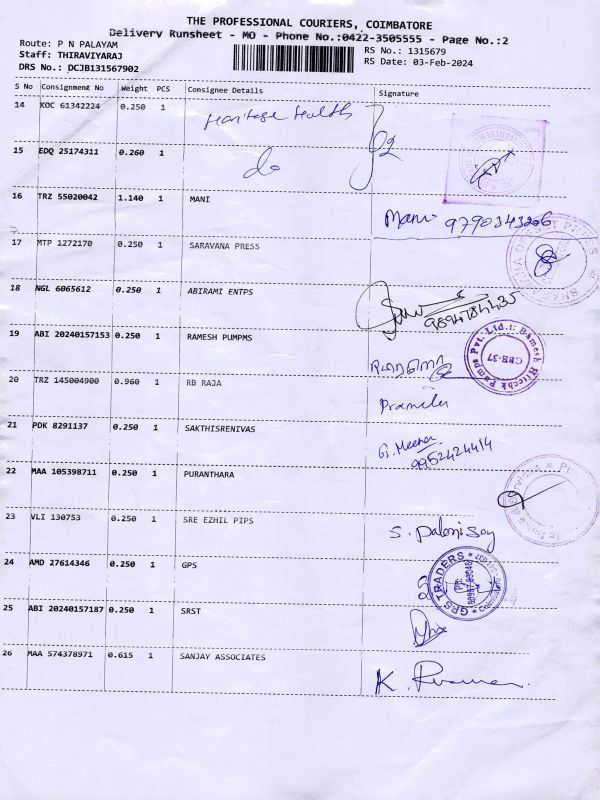 THE PROFESSIONAL COURIERS, COIMBATORE
Delivery Runsheet - MO - Phone No.:0422-3505555 - Page No.:2
Route: P N PALAYAM
RS No.: 1315679
Staff: THIRAVIYARAJ
RS Date: 03-Feb-2024
DRS No.: DCJB131567902
S No Consignment No Weight PCS Consignee Details Signature
14 KOC 61342224 0.250 1 Heritage Health
15 EDQ 25174311 0.260 1 do
16 TRZ 55020042 1.140 1 MANI Mani 9790343206
17 MTP 1272170 0.250 1 SARAVANA PRESS
18 NGL 6065612 0.250 1 ABIRAMI ENTPS
19 ABI 20240157153 0.250 1 RAMESH PUMPMS
CBE-37
20 TRZ 145004900 0.960 1 RB RAJA
21 PDK 8291137 0.250 1 SAKTHISRENIVAS G. Meena
9952424414
22 MAA 105398711 0.250 1 PURANTHARA
23 VLI 130753 0.250 1 SRE EZHIL PIPS
24 AMD 27614346 0.250 1 GPS
GPS TRADERS
25 ABI 20240157187 0.250 1 SRST
26 MAA 574378971 0.615 1 SANJAY ASSOCIATES